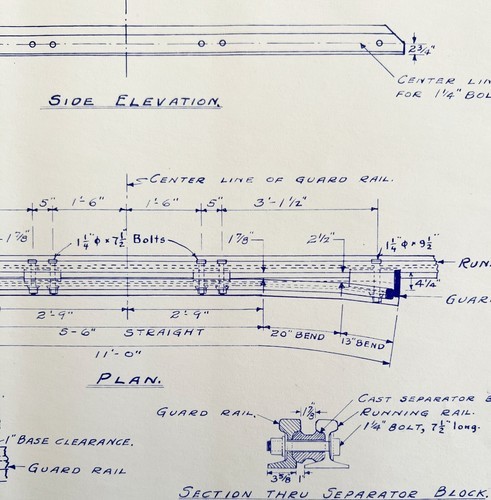 2 3/4"
CENTER LIN
FOR 1 1/4" BOL
SIDE ELEVATION.
CENTER LINE OF GUARD RAIL.
5" 1'-6" 1'-6" 5" 3'-1 1/2"
1 7/8" 1 1/4" φ x 7 1/2" Bolts 1 7/8" 2 1/2" 1 1/4" φ x 9 1/2"
RUN
4 1/4"
GUAR
2'-9" 2'-9"
5'-6" STRAIGHT 20" BEND 13" BEND
11'-0"
PLAN.
CAST SEPARATOR B
GUARD RAIL. 1 7/8" RUNNING RAIL.
1 1/4" BOLT, 7 1/2" long.
1" BASE CLEARANCE.
GUARD RAIL 3 5/8" 1"
SECTION THRU SEPARATOR BLOCK.